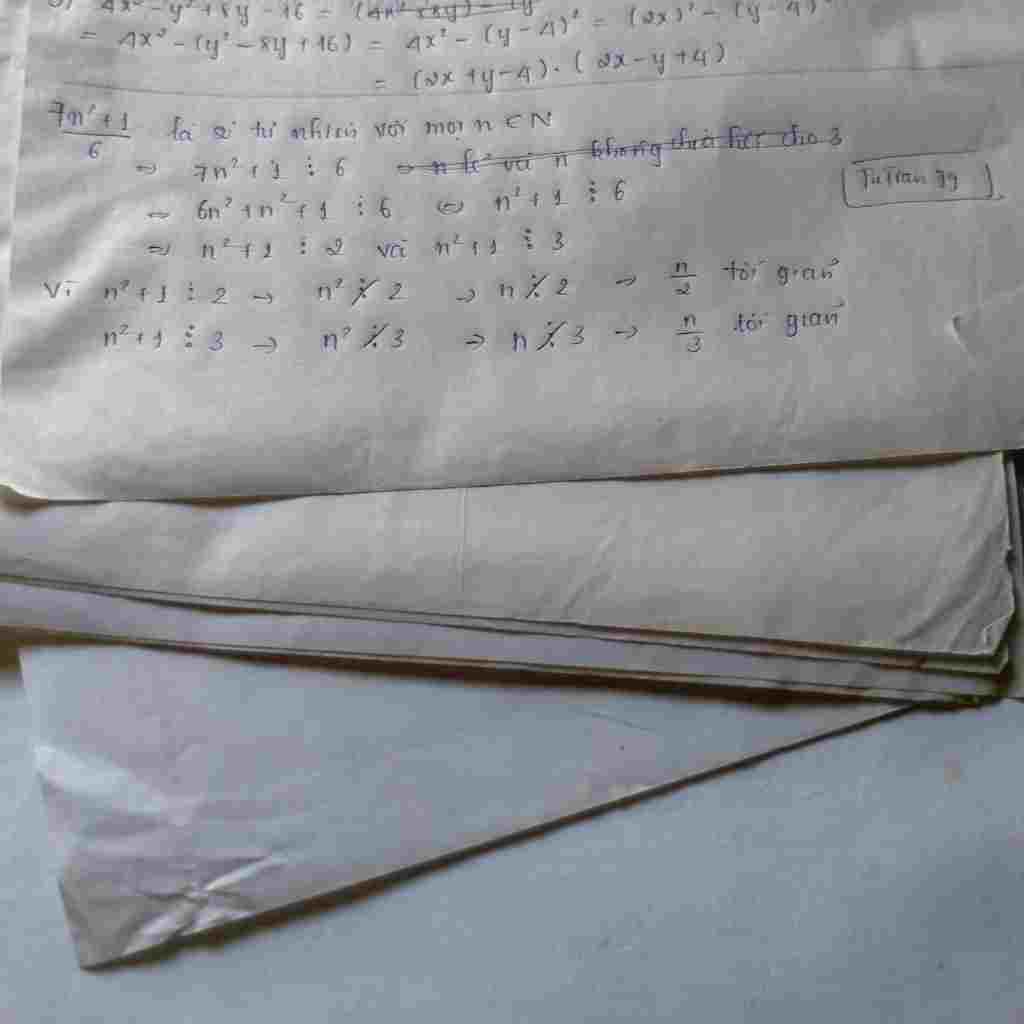 4x² - y² + 8y - 16 =
= 4x² - (y² - 8y + 16) = 4x² - (y - 4)² = (2x)² - (y - 4)²
= (2x + y - 4) . (2x - y + 4)
7n² + 1 / 6 là số tự nhiên với mọi n ∈ N
⇒ 7n² + 1 ⋮ 6 ⇒ n lẻ và n không chia hết cho 3
⇒ 6n² + n² + 1 ⋮ 6 ⇔ n² + 1 ⋮ 6
⇒ n² + 1 ⋮ 2 và n² + 1 ⋮ 3
Vì n² + 1 ⋮ 2 → n² ⋮̸ 2 → n ⋮̸ 2 → n/2 tối giản
n² + 1 ⋮ 3 → n² ⋮̸ 3 → n ⋮̸ 3 → n/3 tối giản